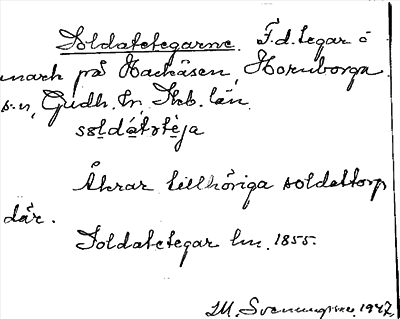 Soldatetegarne. F.d. tegar o
mark på Backåsen, Hornborga
s:n, Gudh. hr, Skb. län.
soldátetèja
Åkrar tillhöriga soldattorp
där.
Soldatetegar lm. 1855.
M. Svenungsson. 1947.